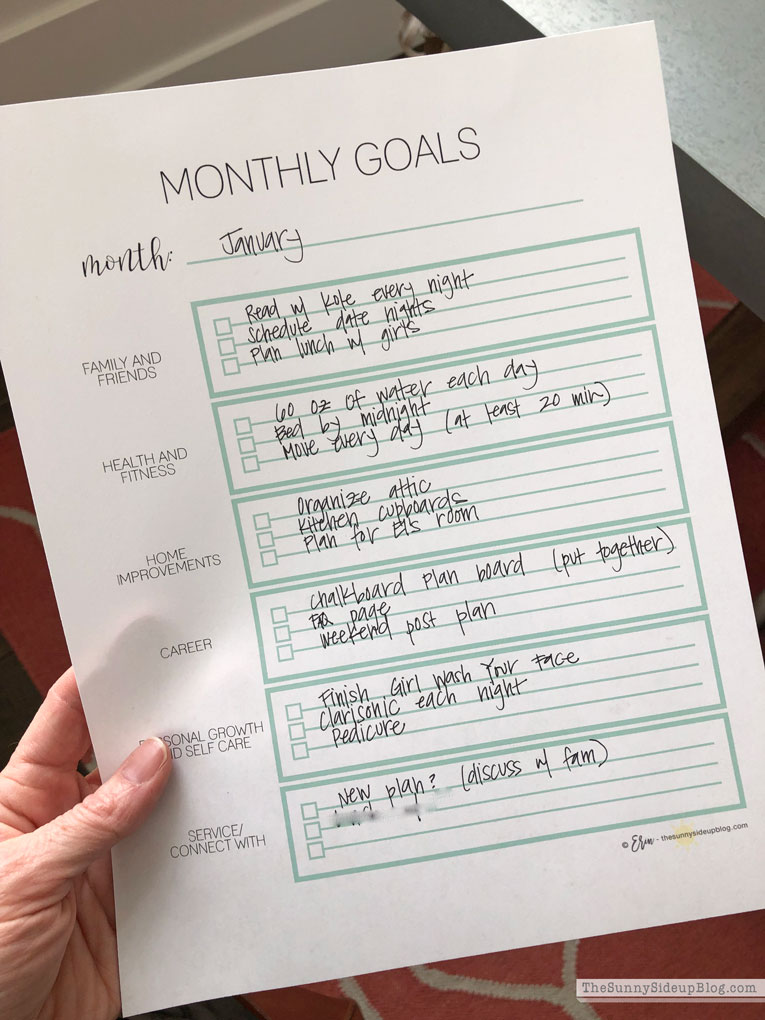 MONTHLY GOALS
month: January
FAMILY AND
FRIENDS
Read w/ Kole every night
Schedule date nights
Plan lunch w/ girls
HEALTH AND
FITNESS
60 oz of water each day
Bed by midnight
Move every day (at least 20 min)
HOME
IMPROVEMENTS
Organize attic
Kitchen cupboards
Plan for El's room
CAREER
Chalkboard Plan board (put together)
FAQ page
Weekend post plan
SONAL GROWTH
ND SELF CARE
Finish Girl Wash Your Face
Clarisonic each night
Pedicure
SERVICE/
CONNECT WITH
New plan? (discuss w/ fam)
© Erin - thesunnysideupblog.com
TheSunnySideupBlog.com